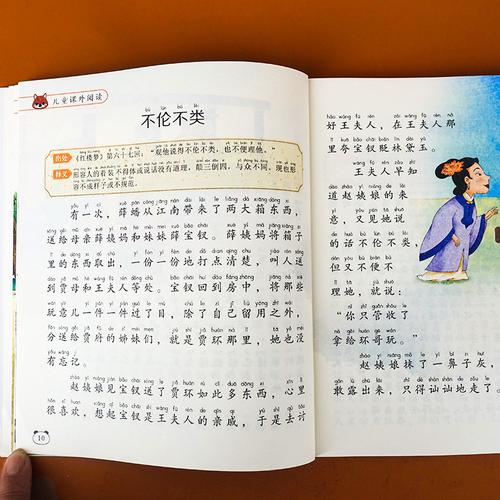 儿童课外阅读
不伦不类
出处 《红楼梦》第六十七回：“观他说得不伦不类，也不便理他。”
释义 形容人的着装不得体或说话没有道理，颠三倒四，与众不同，现也形
容不成样子或不规范。
有一次，薛蟠从江南带来了两大箱东西，
送给母亲薛姨妈和妹妹薛宝钗。薛姨妈将箱子
里的东西取出，一份一份地打点清楚，叫人送
到贾母和王夫人等处。宝钗回到房中，将那些
玩意儿一件一件过了目，除了自己留用之外，
分送给贾府的姊妹们，就是贾环那里，她也没
有忘记。
赵姨娘见宝钗送了贾环如此多东西，心里
很喜欢，想起宝钗是王夫人的亲戚，于是去讨
10
好王夫人，在王夫人那
里夸宝钗贬林黛玉。
王夫人早知
道赵姨娘的来
意，又见她说
的话不伦不类，
但又不便不
理她，就说：
“你只管收了
拿给环哥玩。”
赵姨娘抹了一鼻子灰，
敢露出来，只得讪讪地走了。